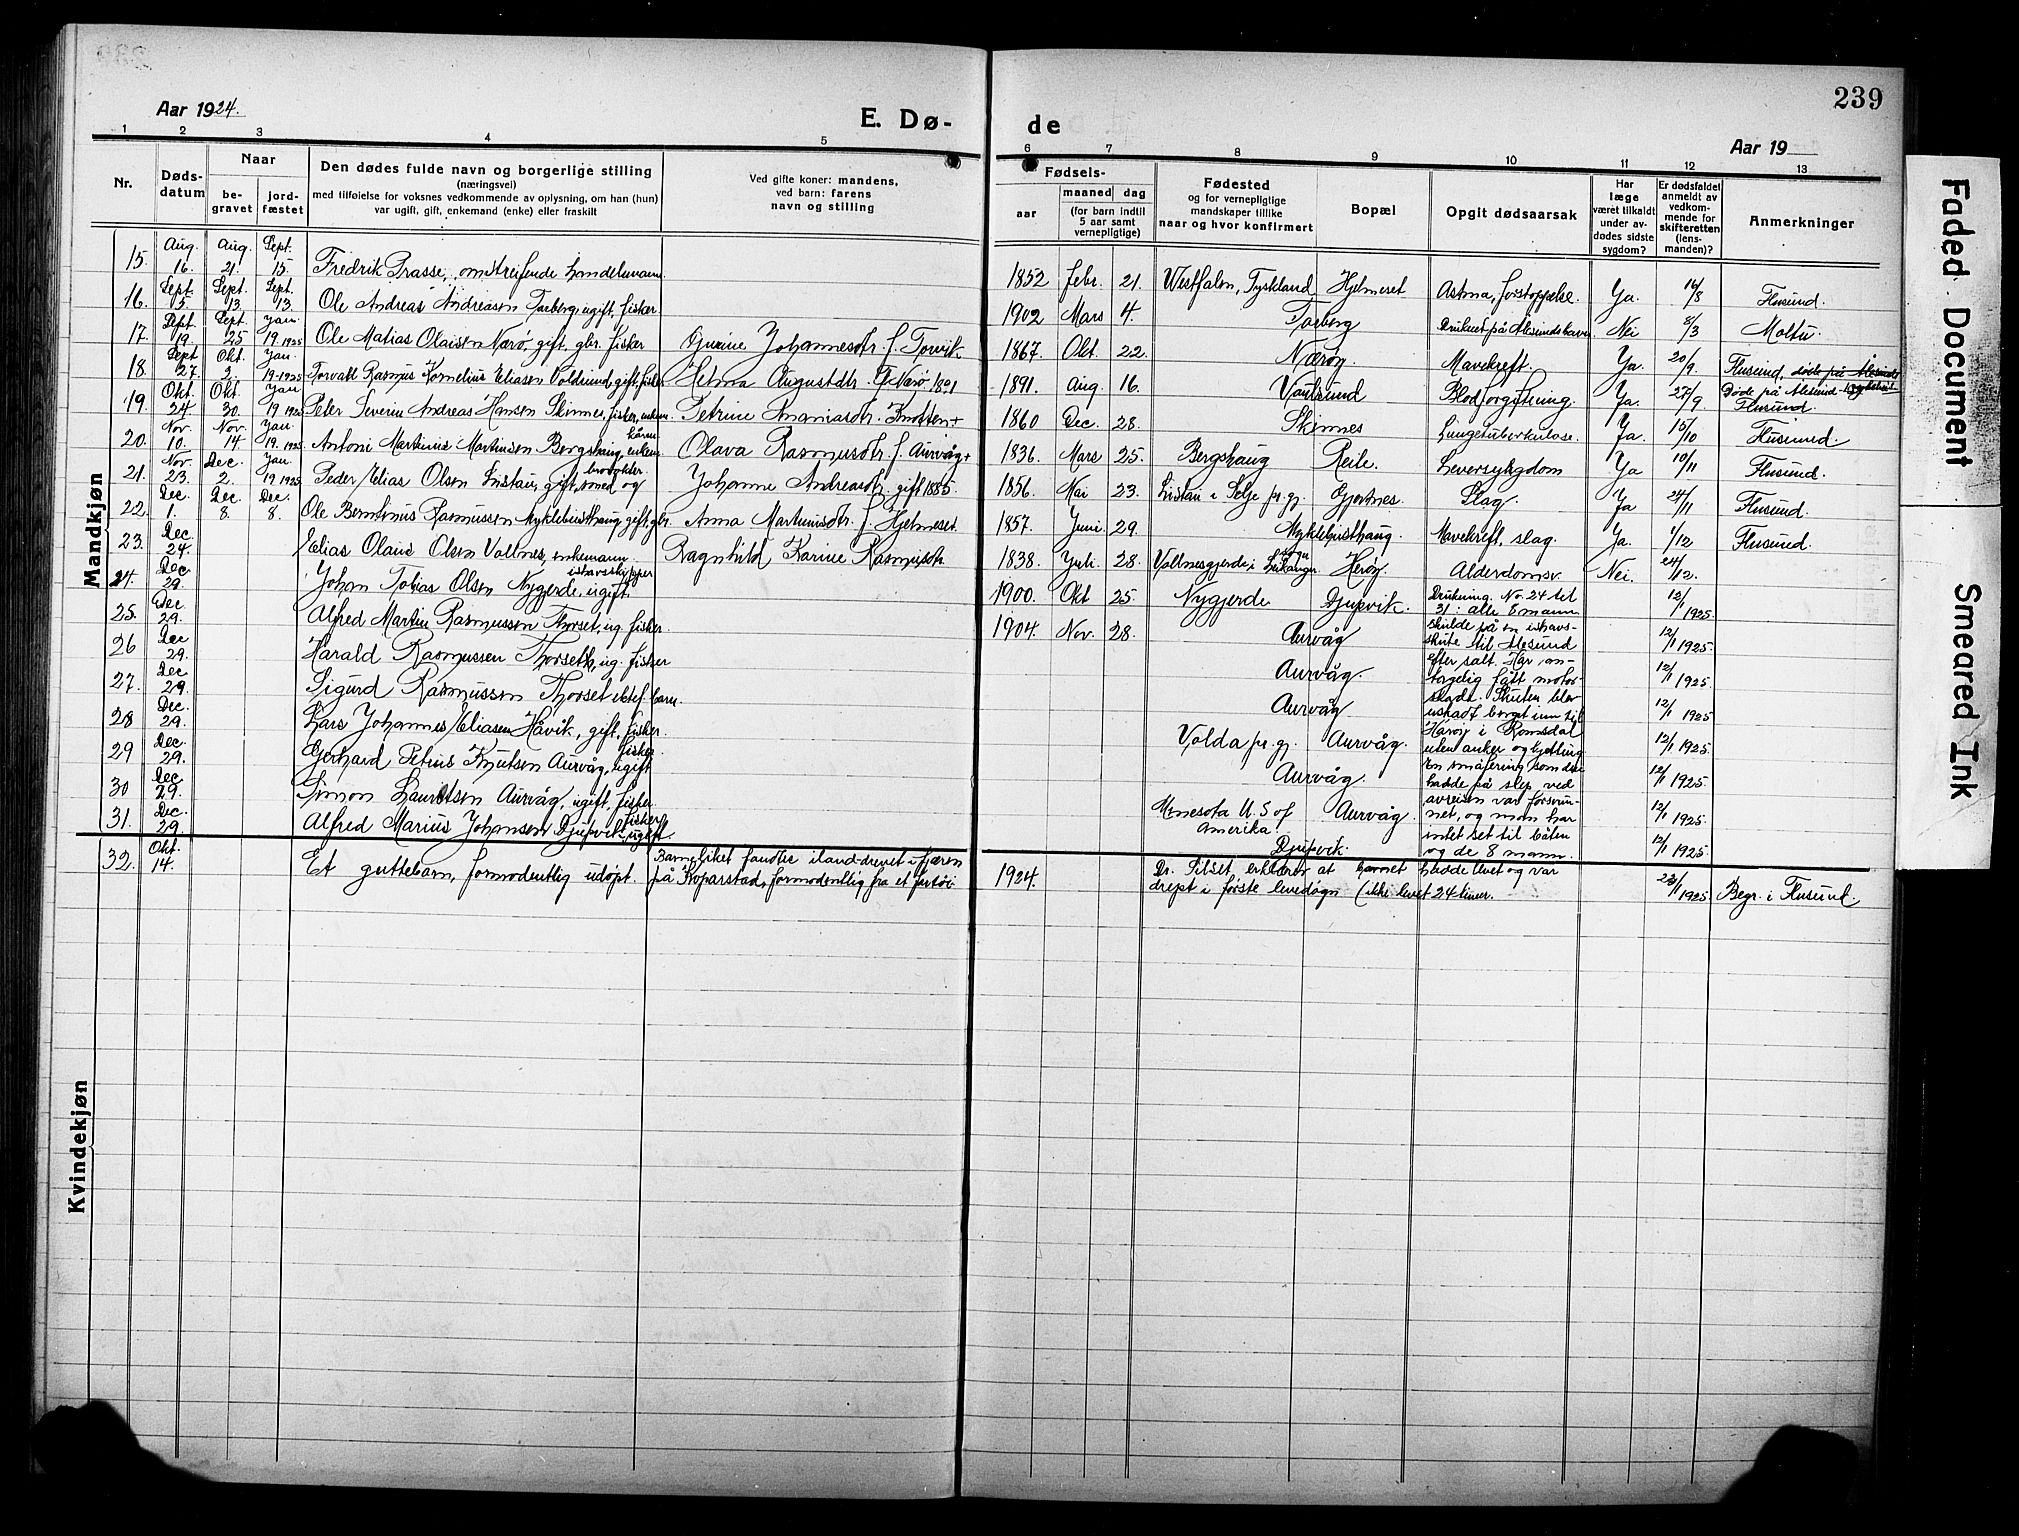 239
Aar 1924.
E. Dø- de
Aar 19
1 2 3 4 5 6 7 8 9 10 11 12 13
Nr.
Døds-
datum
Naar
be-
gravet
jord-
fæstet
Den dødes fulde navn og borgerlige stilling
(næringsvei)
med tilføielse for voksnes vedkommende av oplysning, om han (hun)
var ugift, gift, enkemand (enke) eller fraskilt
Ved gifte koner: mandens,
ved barn: farens
navn og stilling
Fødsels-
aar
maaned dag
(for barn indtil
5 aar samt
vernepligtige)
Fødested
og for vernepligtige
mandskaper tillike
naar og hvor konfirmert
Bopæl
Opgit dødsaarsak
Har
læge
været tilkaldt
under av-
dødes sidste
sygdom?
Er dødsfaldet
anmeldt av
vedkom-
mende for
skifteretten
(lens-
manden)?
Anmerkninger
Mandkjøn
15. Aug. 16. Aug. 21. Sept. 15. Fredrik Prasse, omstreifende handelsmann 1852 Febr. 21. Westfalen, Tyskland Hjelmeset Astma, forstoppelse. Ya. 14/8 Flusund.
16. Sept. 5. Sept. 13 Sept. 13. Ole Andreas Andreasen Torberg, ugift, fisker 1902 Mars 4. Torberg Druknet på Alesunds havn Nei 8/3 Moltu.
17. Sept. 19. Sept. 25 Jan. 19. 1925 Ole Matias Olaisen Nærø, gift, gbr. fisker Gurine Johannesdtr. f. Torvik 1867. Okt 22. Nærøy Mavekreft. Ya. 20/9. Flusund.
18. Sept 27. Okt. 2. Jan. 19-1925 Torvald Rasmus Kornelius Eliasen Voldsund, gift, fisker Helma Augustdtr. G. Nærø 1891 1891. Aug. 16. Voldsund Blodforgiftning. Ya. 27/9 Døde på Alesund sykehus Flusund.
19. Okt 24 Okt. 30. Jan 19 1925 Peter Severin Andreas Hansen Skinnes, fisker, enkem. Petrine Ananiasdtr. Knotten + 1860 Dec. 28. Skinnes Lungetuberkulose. Ja. 15/10 Flusund.
20. Nov. 10. Nov. 14 Jan. 19. 1925 Antoni Martinus Martinsen Bergshaug, enkem. kårm. Olava Rasmusdtr. f. Aurvåg + 1836. Mars 25. Bergshaug Reite. Leversykgdom Ya 10/11 Flusund.
21. Nov. 23. Dec. 2. Jan 19 1925. Peder Elias Olsen Listau, gift, smed og brovokter. Johanne Andreasdtr. gift 1885. 1856. Mai 23. Listau i Selje pr. gj. Gjertnes. Slag Ja 24/11 Flusund.
22. Dec. 1. Dec. 8. Dec. 8. Ole Berntinus Rasmussen Myklebusthaug, gift, gbr. Anna Martinusdtr. f. Hjelmeset 1857. Juni. 29. Myklebusthaug. Mavekreft, slag. Ya. 1/12 Flusund.
23. Dec. 24. Elias Olaus Olsen Vollnes, enkemann. Ragnhild Karine Rasmusdtr. 1838. Juli 28. Vollnesgjerde, i Leikanger sogn Herøy. Alderdomsv. Nei. 24/12.
24. Dec 29. Johan Tobias Olsen Nygjerde, ugift. ishavsskipper 1900. Okt 25. Nygjerde Djupvik. 12/1 1925.
25. Dec. 29. Alfred Martin Rasmussen Thorset, ug. fisker. 1904. Nov. 28. Aurvåg 12/1 1925.
26 Dec 29. Harald Rasmussen Thorseth, ug. fisker Aurvåg. 12/1 1925.
27. Dec 29. Sigurd Rasmussen Thorset ektef. barn. Aurvåg 12/1 1925
28 Dec. 29. Lars Johannes Eliasen Håvik, gift, fisker. Volda pr. gj. Aurvåg. 12/1 1925.
29 Dec. 29. Gerhard Petrus Knutsen Aurvåg, ugift fisker. Aurvåg. 12/1 1925.
30 Dec. 29. Simon Lauritsen Aurvåg, ugift, fisker Minesota U. S of Amerika. Aurvåg 12/1 1925.
31. Dec. 29. Alfred Marius Johansen Djupvik ugift. fisker Djupvik. 12/1 1925.
Drukning. No. 24 til
31: alle 8 mann
skulde på en ishavs-
skute til Alesund
efter salt. Har an-
tagelig fått motor-
skade. Skuten blev
uskadt berget inn til
Harøy i Romsdal
uten anker og kjetting
En småfering som de
hadde på slep ved
avreisen var forsvun-
net, og man har
intet set til båten
og de 8 mann.
32. Okt. 14. Et guttebarn, formodentlig udøpt. Barneliket fandtes iland-drevet i fjæren
på Koparstad, formodentlig fra et fartøi 1924. Dr. Sibset erklærer at barnet hadde levet og var
drept i første levedøgn (ikke levet 24 timer. 23/1 1925. Begr. i Flusund.
Kvindekjøn
Faded Document
Smeared Ink